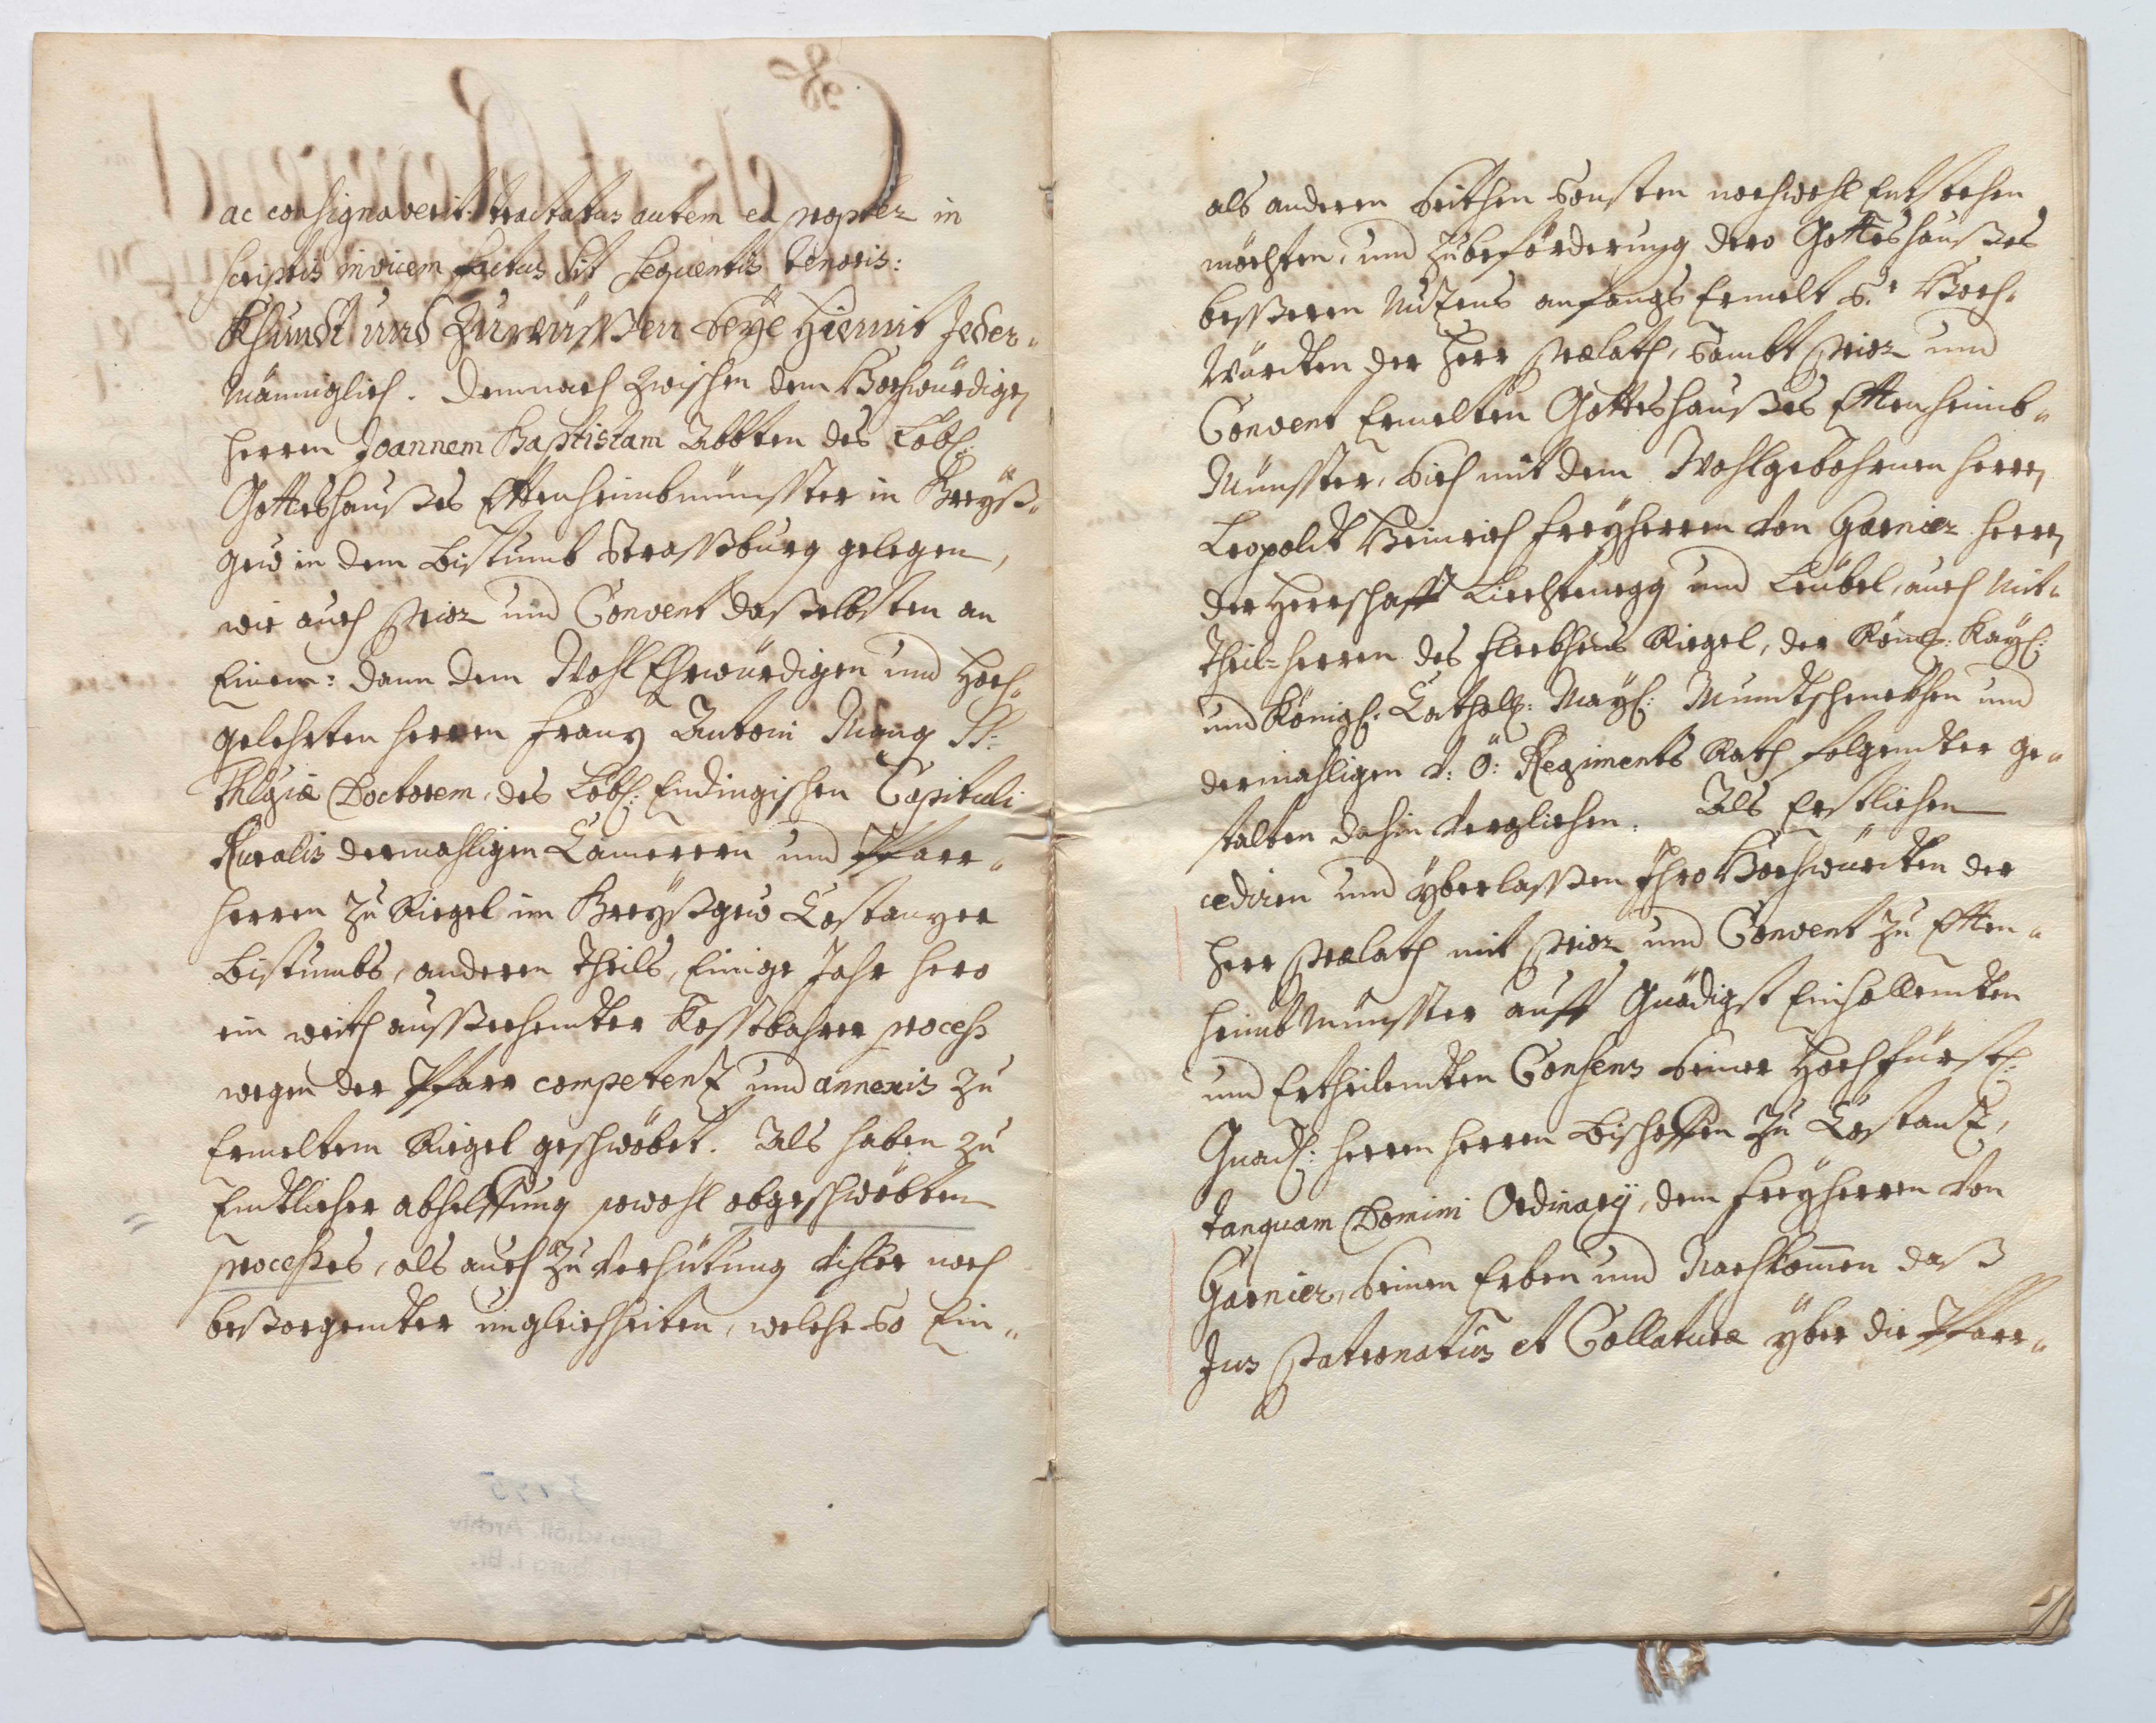 ac consignaverit: tractatus autem ea propter in
scriptis invicem factus sit sequentis tenoris:
Khundt und Zuwüssen seÿe Hiemit Jeder„
männiglich. Demnach zwischen dem Hochwürdigen
Herren Joannem Baptistam Abbten des Löbl:
Gotteshaußes Ettenheimbmünster in Breÿß„
gew in dem Bistumb Straßburg gelegen,
wie auch Prior und Convent daselbsten an
Einem: dann dem Wohl Ehrwürdigen und Hoch„
gelehrten Herren Franz Antoni Mang SS:
Thlgiæ Doctorem, des Löbl: Endingischen Capituli
Ruralis dermahligen Camerern und Pfarr„
herren zu Riegel im Breÿßgew Costanzer
Bistumbs, anderen theils, Einige Jahr hero
ein weith aussehendter Kostbahrer process
wegen der Pfarr competenz und annexis zu
Ermeltem Riegel geschwöbt. Als haben zu
Endtlicher abhelffung sowohl obgeschwöbten
processes, als auch zu verhütung viller noch
besorgendter ungleichheiten, welche so Ein„
als anderen seithen sonsten nochwohl Entstehen
möchten, und zu beförderung dero Gotteshaußes
besseren Nuzens anfangs Ermelt S.r Hoch„
Würdten der Herr Prælath, sambt Prior und
Convent Ermelten Gotteshaußes Ettenheimb„
Münster, sich mit dem Wohlgebohrnen Herren
Leopoldt Heinrich Freÿherren von Garnier Herren
der Herrschafft Liechtenegg und Leübel, auch Mit„
theil=herren des Fleckhens Riegel, der Röm: Kaÿl:
und Königl: Cathol: Maÿl: Mundtschenkhen und
dermahligen v: Ö: Regiments Rath folgendter ge„
stalten dahin verglichen. Als Erstlichen
cediren und ÿberlassen Ihro Hochwürdten der
Herr Prælath mit Prior und Convent zu Etten„
heimb Münster auff Gnädigst Einhollendten
und Ertheilendten Consens seiner Hochfürstl:
Gnad: Herren Herren Bischoffen zu Costanz,
tanquam Domini Ordinarÿ, dem Freÿherren von
Garnier, seinen Erben und Nachkommen daß
Jus Patronatûs et Collaturæ ÿber die Pfarr„